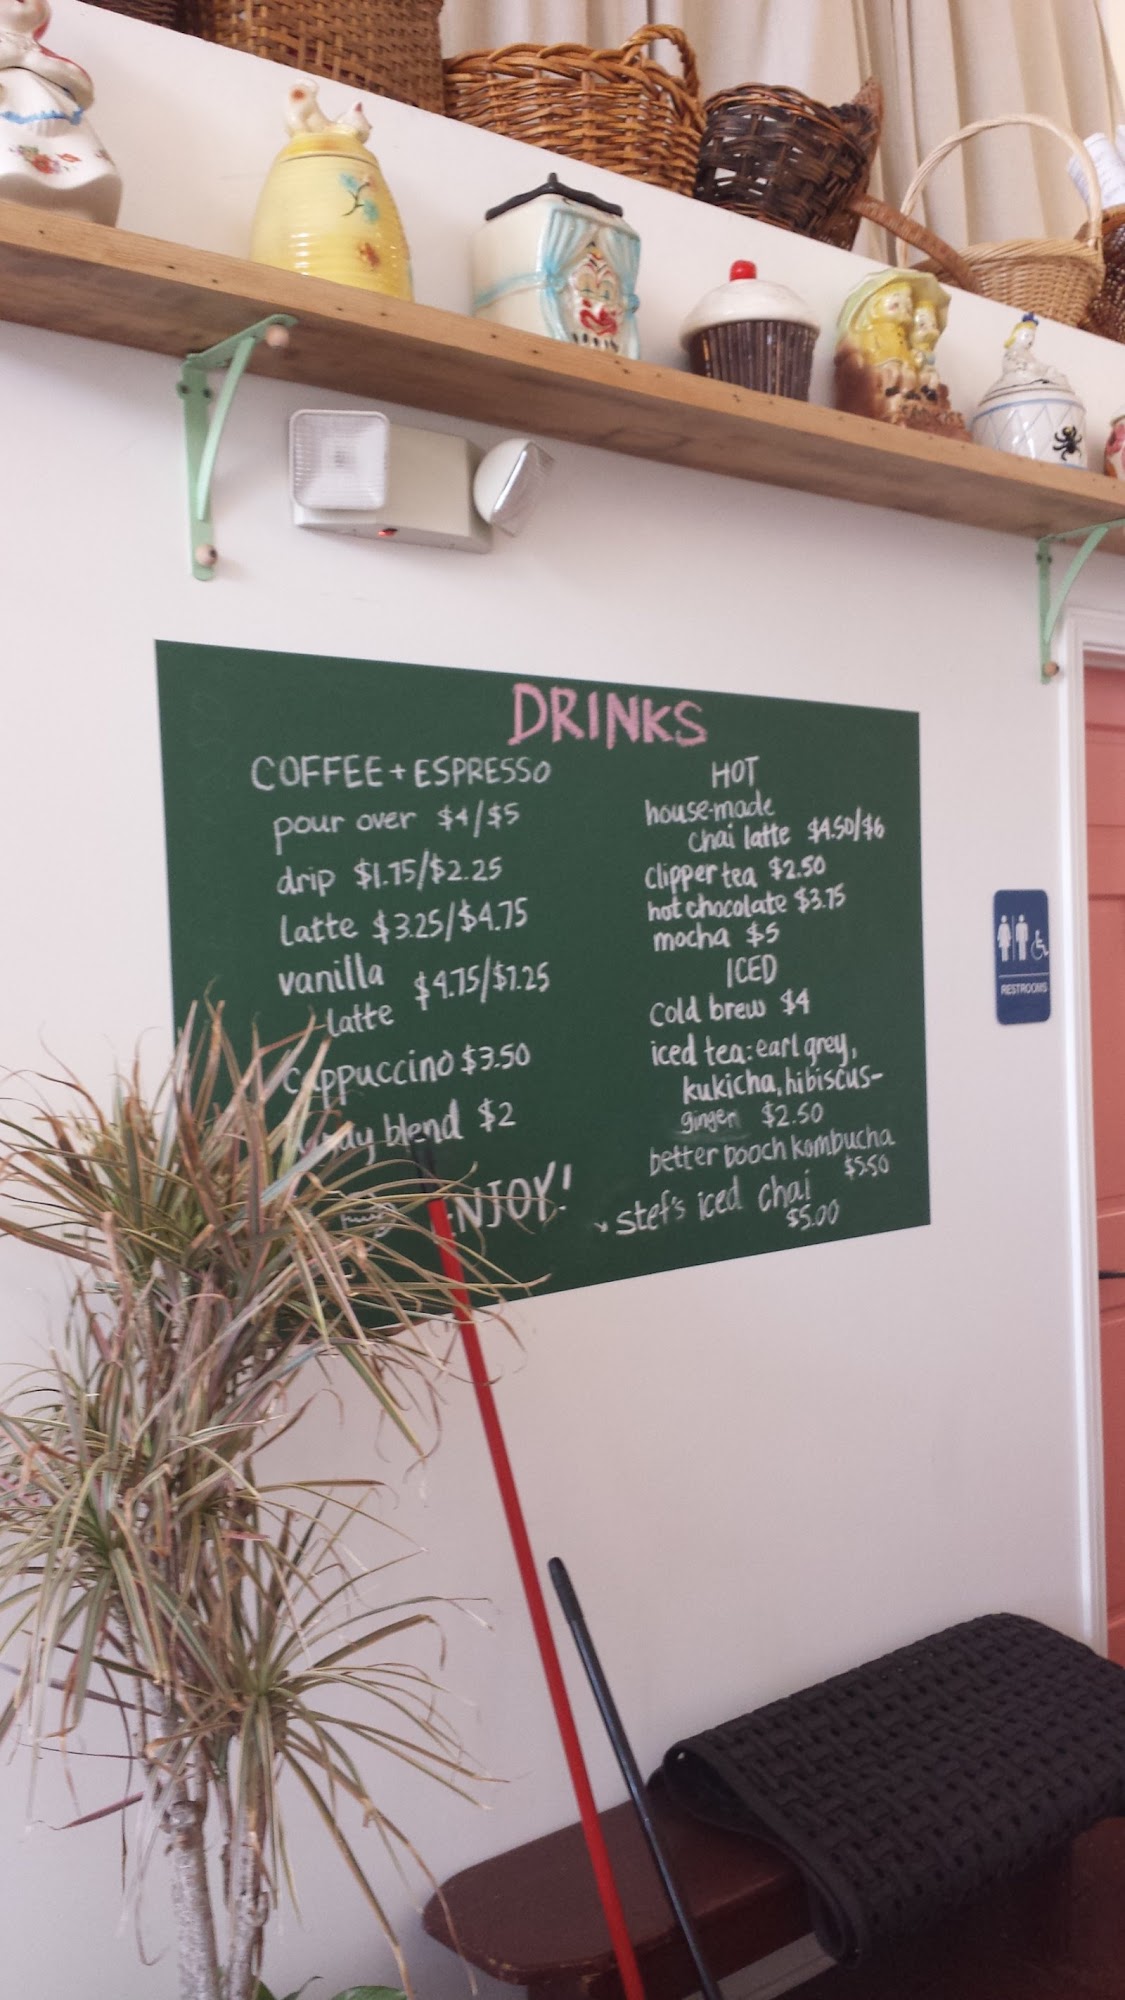 DRINKS
COFFEE + ESPRESSO
pour over $4/$5
drip $1.75/$2.25
latte $3.25/$4.75
vanilla $4.75/$7.25
latte
cappuccino $3.50
blend $2
ENJOY!
HOT
house-made
chai latte $4.50/$6
clipper tea $2.50
hot chocolate $3.75
mocha $5
ICED
Cold brew $4
iced tea: earl grey,
kukicha, hibiscus-
ginger $2.50
better booch kombucha
$5.50
stef's iced chai
$5.00
RESTROOMS